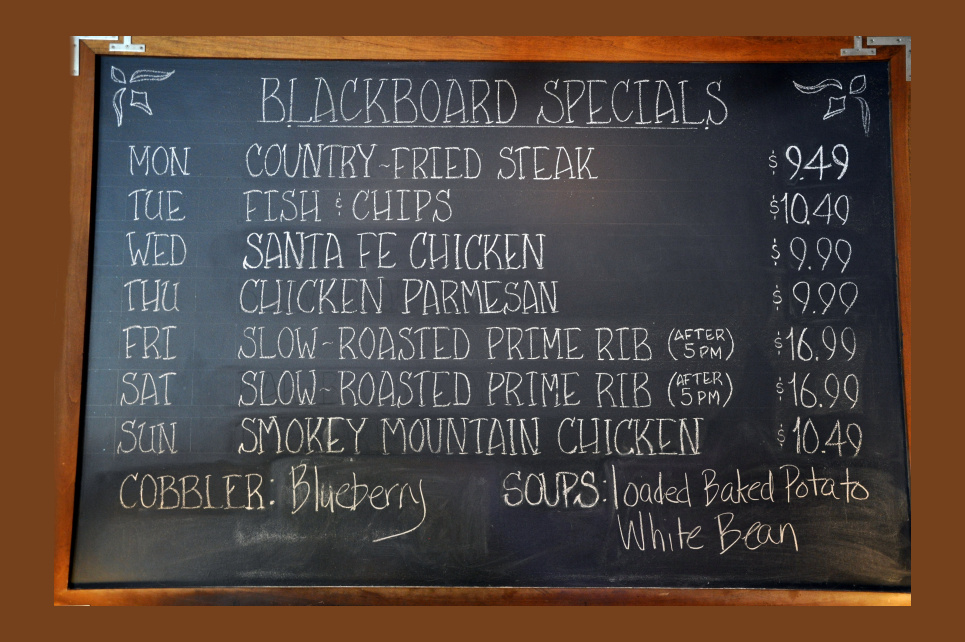 BLACKBOARD SPECIALS
MON COUNTRY-FRIED STEAK $9.49
TUE FISH & CHIPS $10.49
WED SANTA FE CHICKEN $9.99
THU CHICKEN PARMESAN $9.99
FRI SLOW-ROASTED PRIME RIB (AFTER 5PM) $16.99
SAT SLOW-ROASTED PRIME RIB (AFTER 5PM) $16.99
SUN SMOKEY MOUNTAIN CHICKEN $10.49
COBBLER: Blueberry SOUPS: loaded Baked Potato
White Bean